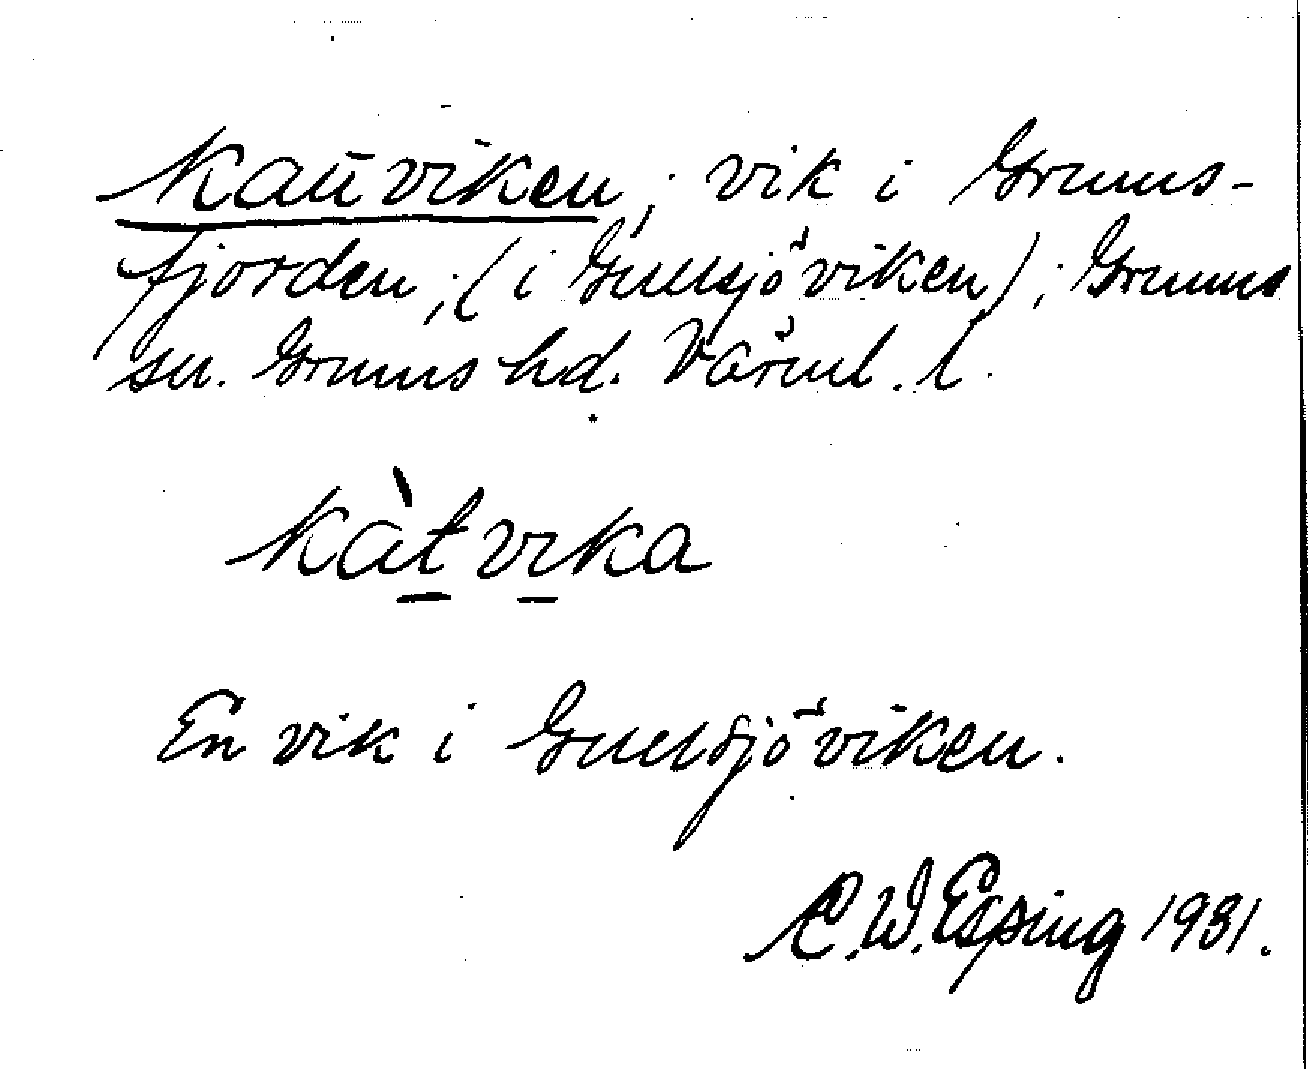 Kattviken; vik i Grums-
fjorden; (i ); Grums
sn. Grums hd. Värml. l.
kàtvika
En vik i
C. W. Esping 1931.